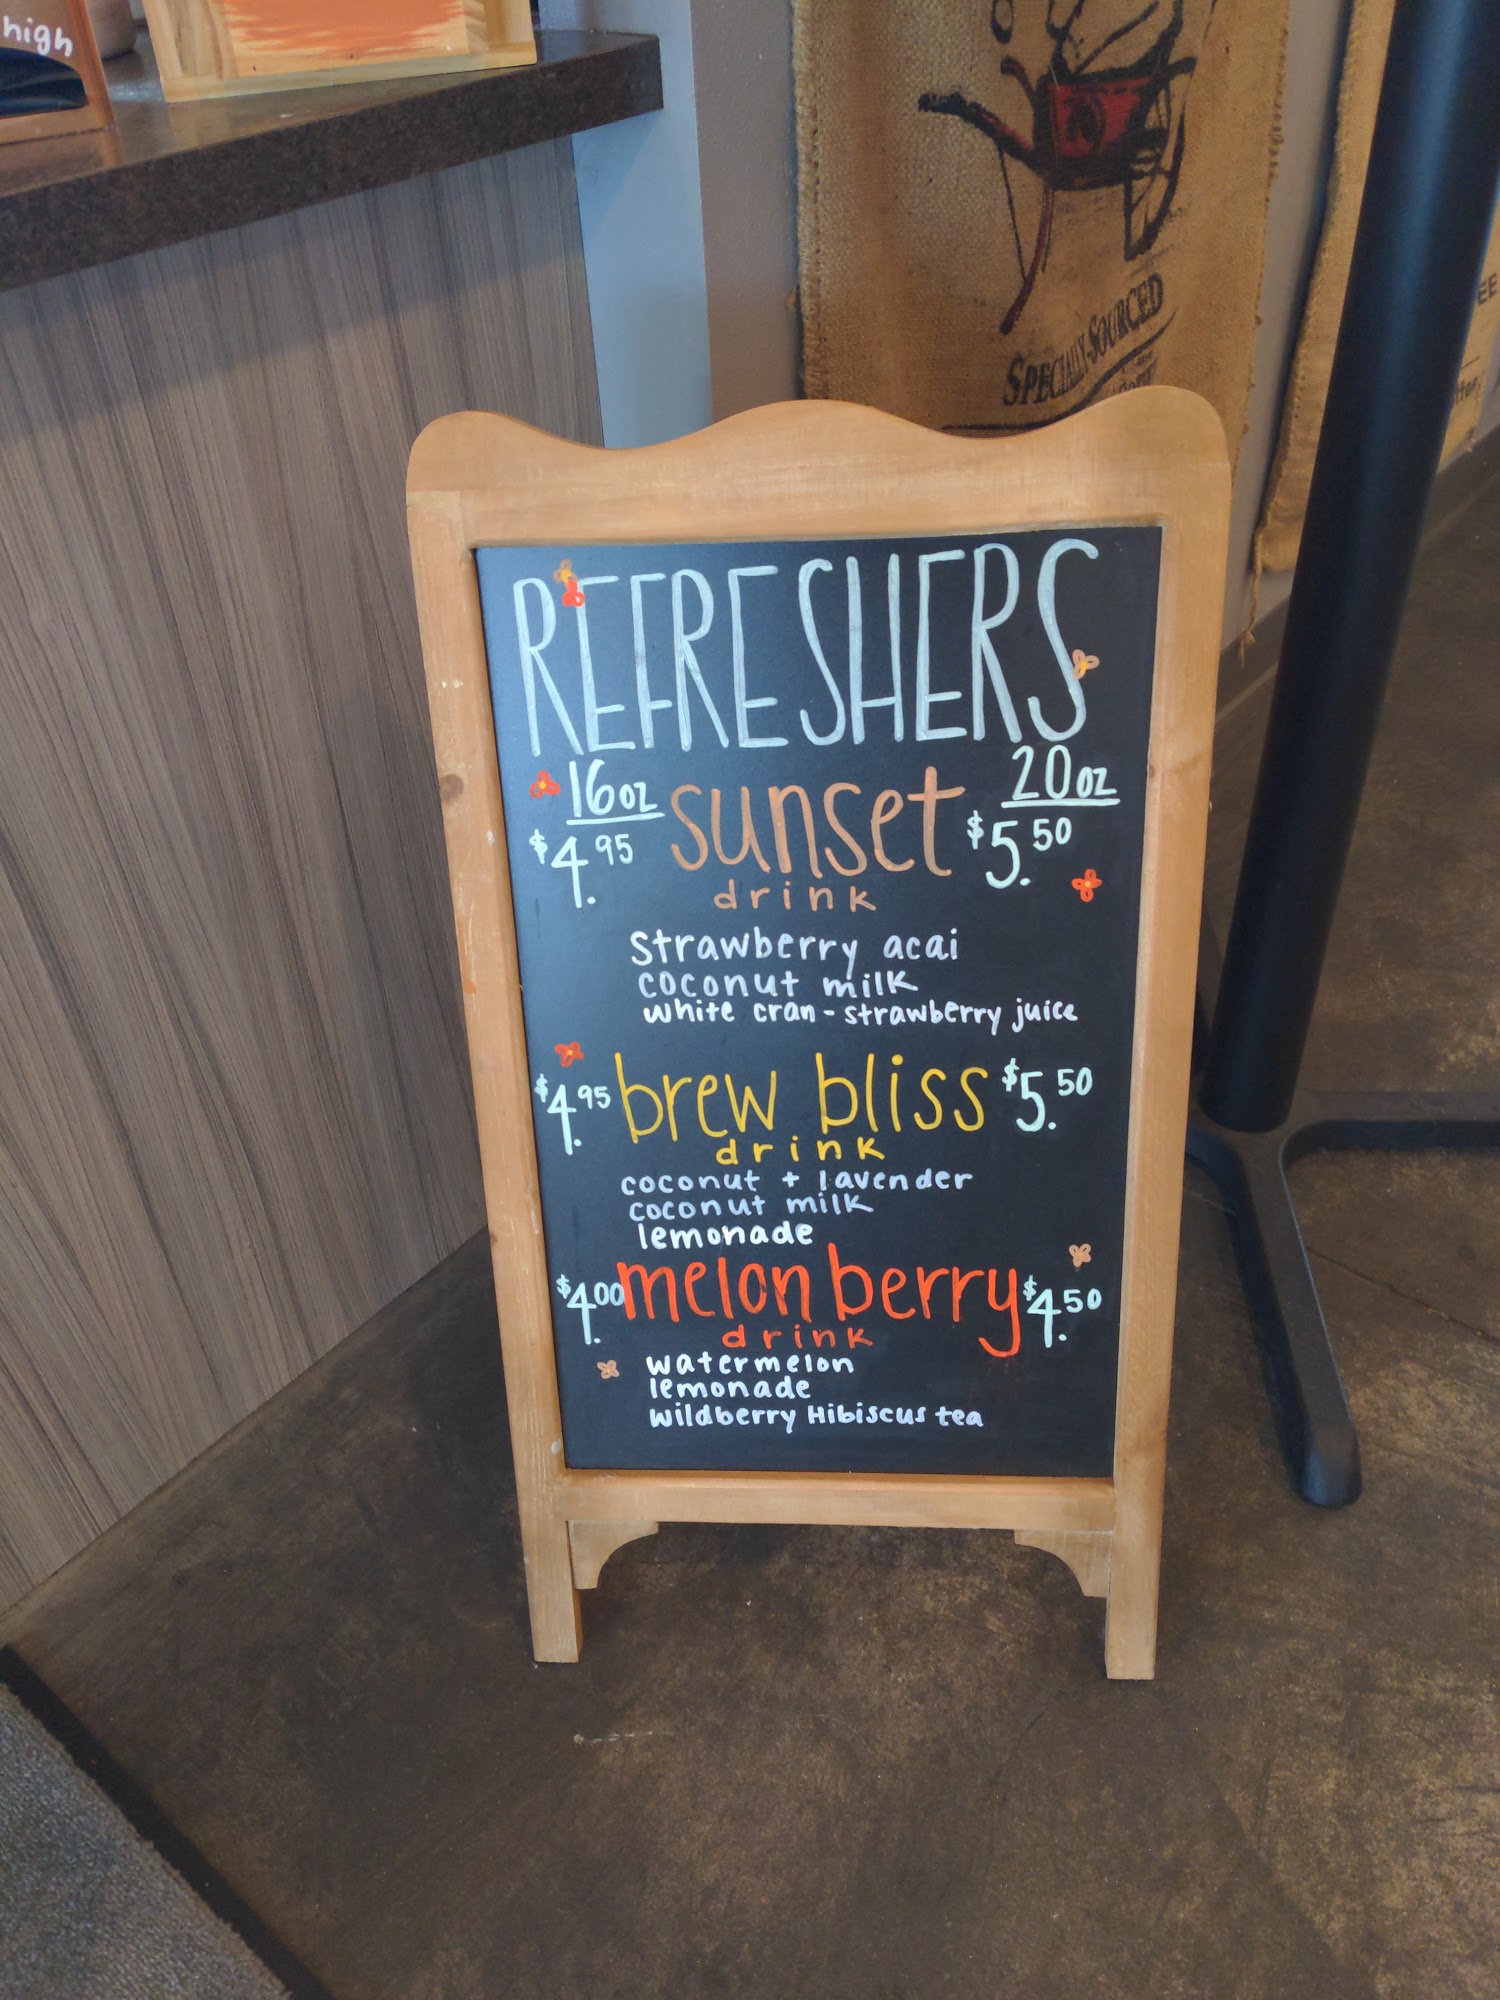 high
SPECIALLY-SOURCED
EE
REFRESHERS
16oz sunset 20oz
$4.95 drink $5.50
strawberry acai
coconut milk
white cran-strawberry juice
$4.95 brew bliss $5.50
drink
coconut + lavender
coconut milk
lemonade
$4.00 melon berry $4.50
drink
watermelon
lemonade
wildberry Hibiscus tea